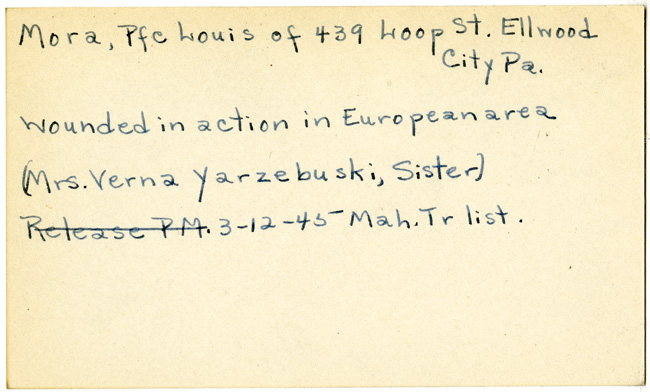 Mora, Pfc Louis of 439 Loop St. Ellwood
City Pa.
Wounded in action in European area
(Mrs. Verna Yarzebuski, Sister)
Release P.M. 3-12-45 Mah. Tr list.